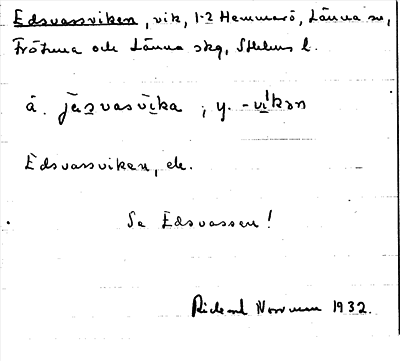 Edsvassviken, vik, 1-2 Hemmarö, Länna sn,
Frötuna och Länna skg, Sthlms l.
å. jäsvasvika, y. -vikən
Edsvassviken, ek.
Se Edsvassen!
Rickard Norrman 1932.